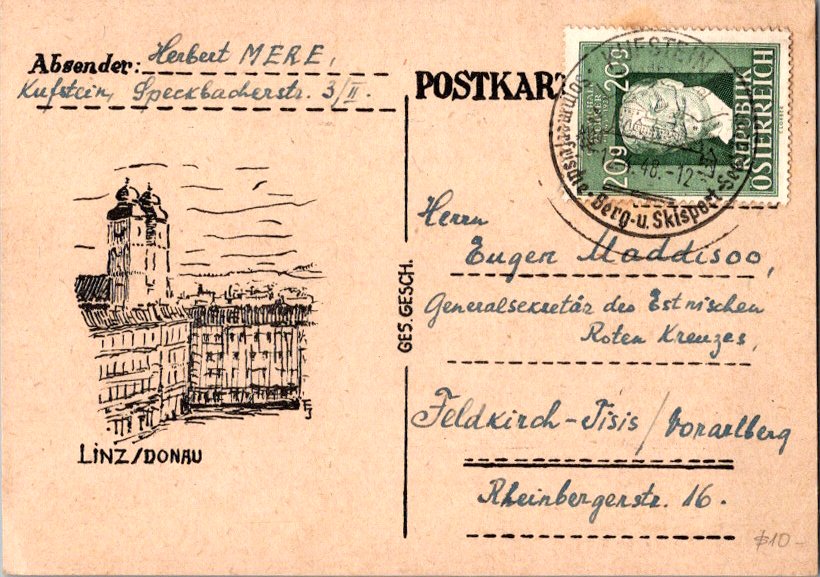 Absender: Herbert MERE,
Kufstein, Speckbacherstr. 3/II.
POSTKART
20g
20g
REPUBLIK
ÖSTERREICH
KUFSTEIN
Sommerfrische-Berg-u. Skisport
48.-12
Herrn
Eugen Maddisoo,
Generalsekretär des Estnischen
Roten Kreuzes,
GES. GESCH.
Feldkirch-Tisis/Vorarlberg
Rheinbergerstr. 16.
LINZ/DONAU
$10-